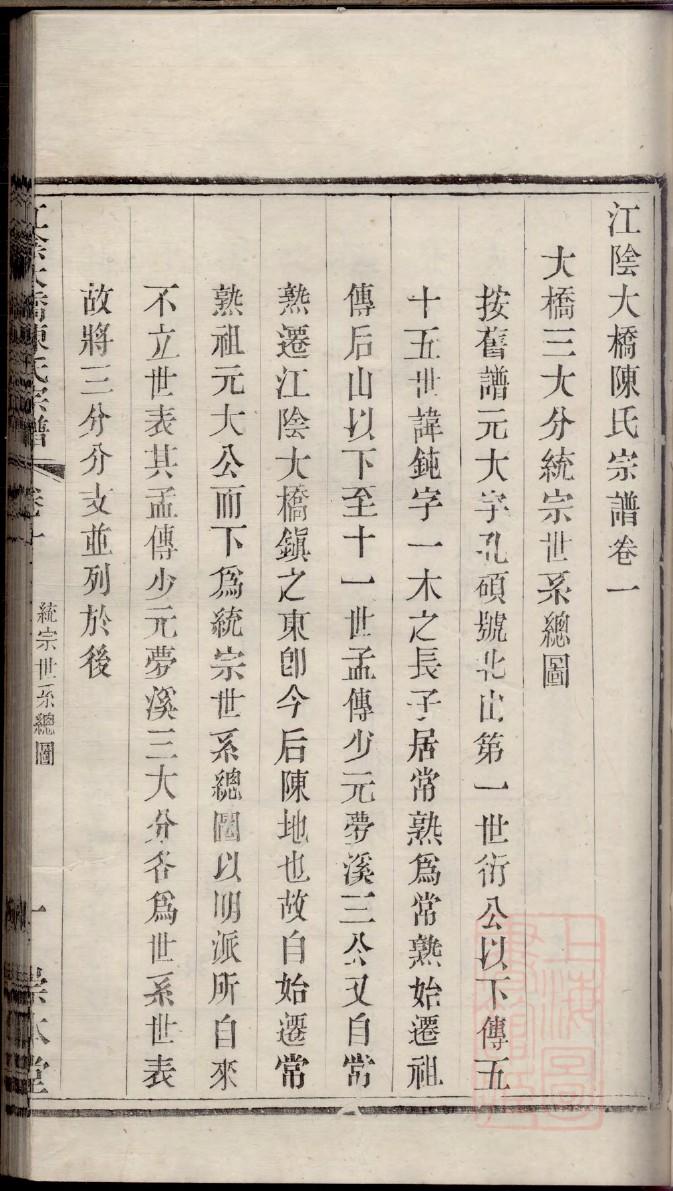 江陰大橋陳氏宗譜卷一
大橋三大分統宗世系總圖
按舊譜元大字孔碩號北山第一世衍公以下傳五
十五世諱鈍字一木之長子居常熟爲常熟始遷祖
傳后山以下至十一世孟傳少元夢溪三公又自常
熟遷江陰大橋鎭之東卽今后陳地也故自始遷常
熟祖元大公而下爲統宗世系總圖以明派所自來
不立世表其孟傳少元夢溪三大分各爲世系世表
故將三分分支並列於後
江陰大橋陳氏宗譜
統宗世系總圖
一
崇本堂
上海圖書館藏